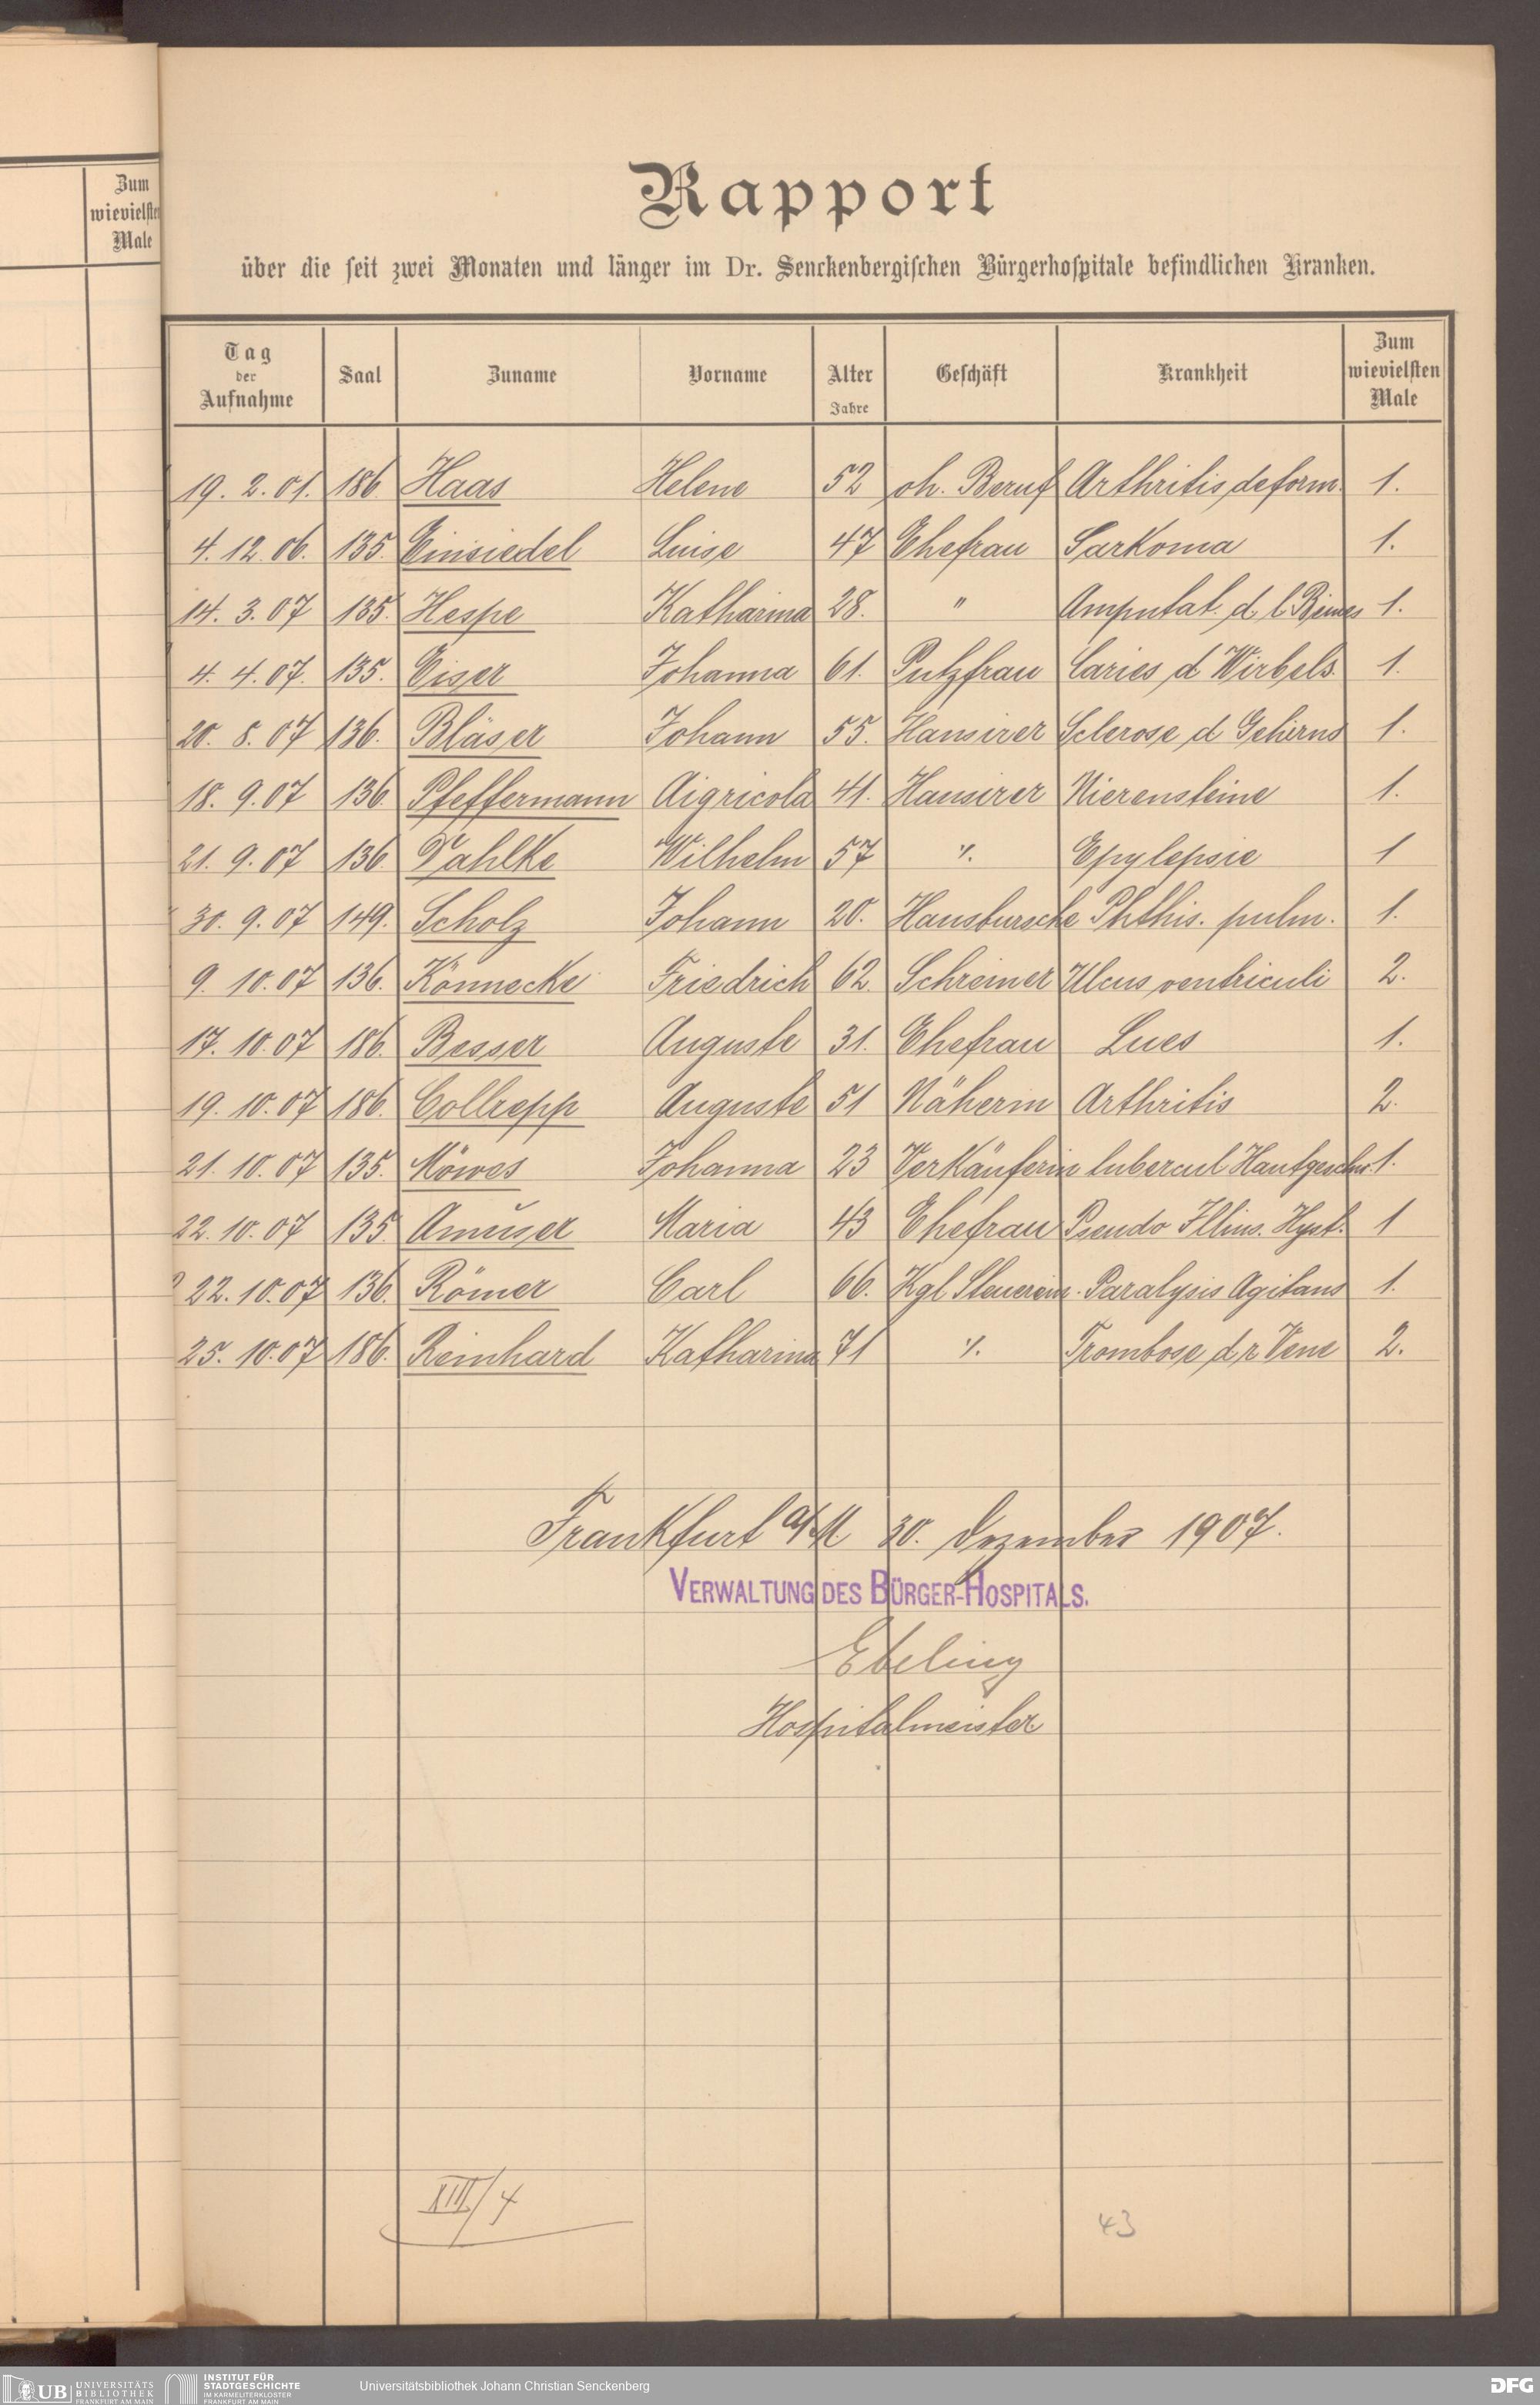 Zum
wievielsten
Male
Rapport
über die seit zwei Monaten und länger im Dr. Senckenbergischen Bürgerhospitale befindlichen Kranken.
Tag der Aufnahme Saal Zuname Vorname Alter Jahre Geschäft Krankheit Zum wievielsten Male
19. 2. 01. 186 Haas Helene 52 oh. Beruf Arthritis deform. 1.
4. 12. 06. 135. Einsiedel Luise 47 Ehefrau Sarkoma 1.
14. 3. 07 135. Hespe Katharina 28. " Amputat. d l 1.
4. 4. 07. 135. Eiser Johanna 61. Putzfrau Caries d Wirbels 1.
20. 8. 07 136. Bläser Johann 55. Hausirer Sclerose d Gehirns 1.
18. 9. 07 136. Pfeffermann Aigricola 41. Hausirer Nierensteine 1.
21. 9. 07 136. Pahlke Wilhelm 57 ". Epylepsie 1
30. 9. 07 149. Scholz Johann 20. Hausbursche Phthis. pulm. 1.
9. 10. 07 136. Könnecke Friedrich 62. Schreiner Ulcus ventriculi 2.
17. 10. 07 186. Besser Auguste 31. Ehefrau Lues 1.
19. 10. 07 186. Collrepp Auguste 51 Näherin Arthritis 2.
21. 10. 07 135. Möwes Johanna 23 Verkäuferin tubercul Hautgeschw. 1.
22. 10. 07 135. Maria 43 Ehefrau Pseudo Hyst. 1
22. 10. 07 136. Römer Carl 66. Kgl Paralysis Agitans 1.
25. 10. 07 186. Reinhard Katharina 71 ". Trombose d r Vene 2.
Frankfurt a/M 30. Dezember 1907.
VERWALTUNG DES BÜRGER-HOSPITALS.
Ebeling
Hospitalmeister
XIII/4
43
UB UNIVERSITÄTS BIBLIOTHEK FRANKFURT AM MAIN
INSTITUT FÜR STADTGESCHICHTE IM KARMELITERKLOSTER FRANKFURT AM MAIN
Universitätsbibliothek Johann Christian Senckenberg
DFG